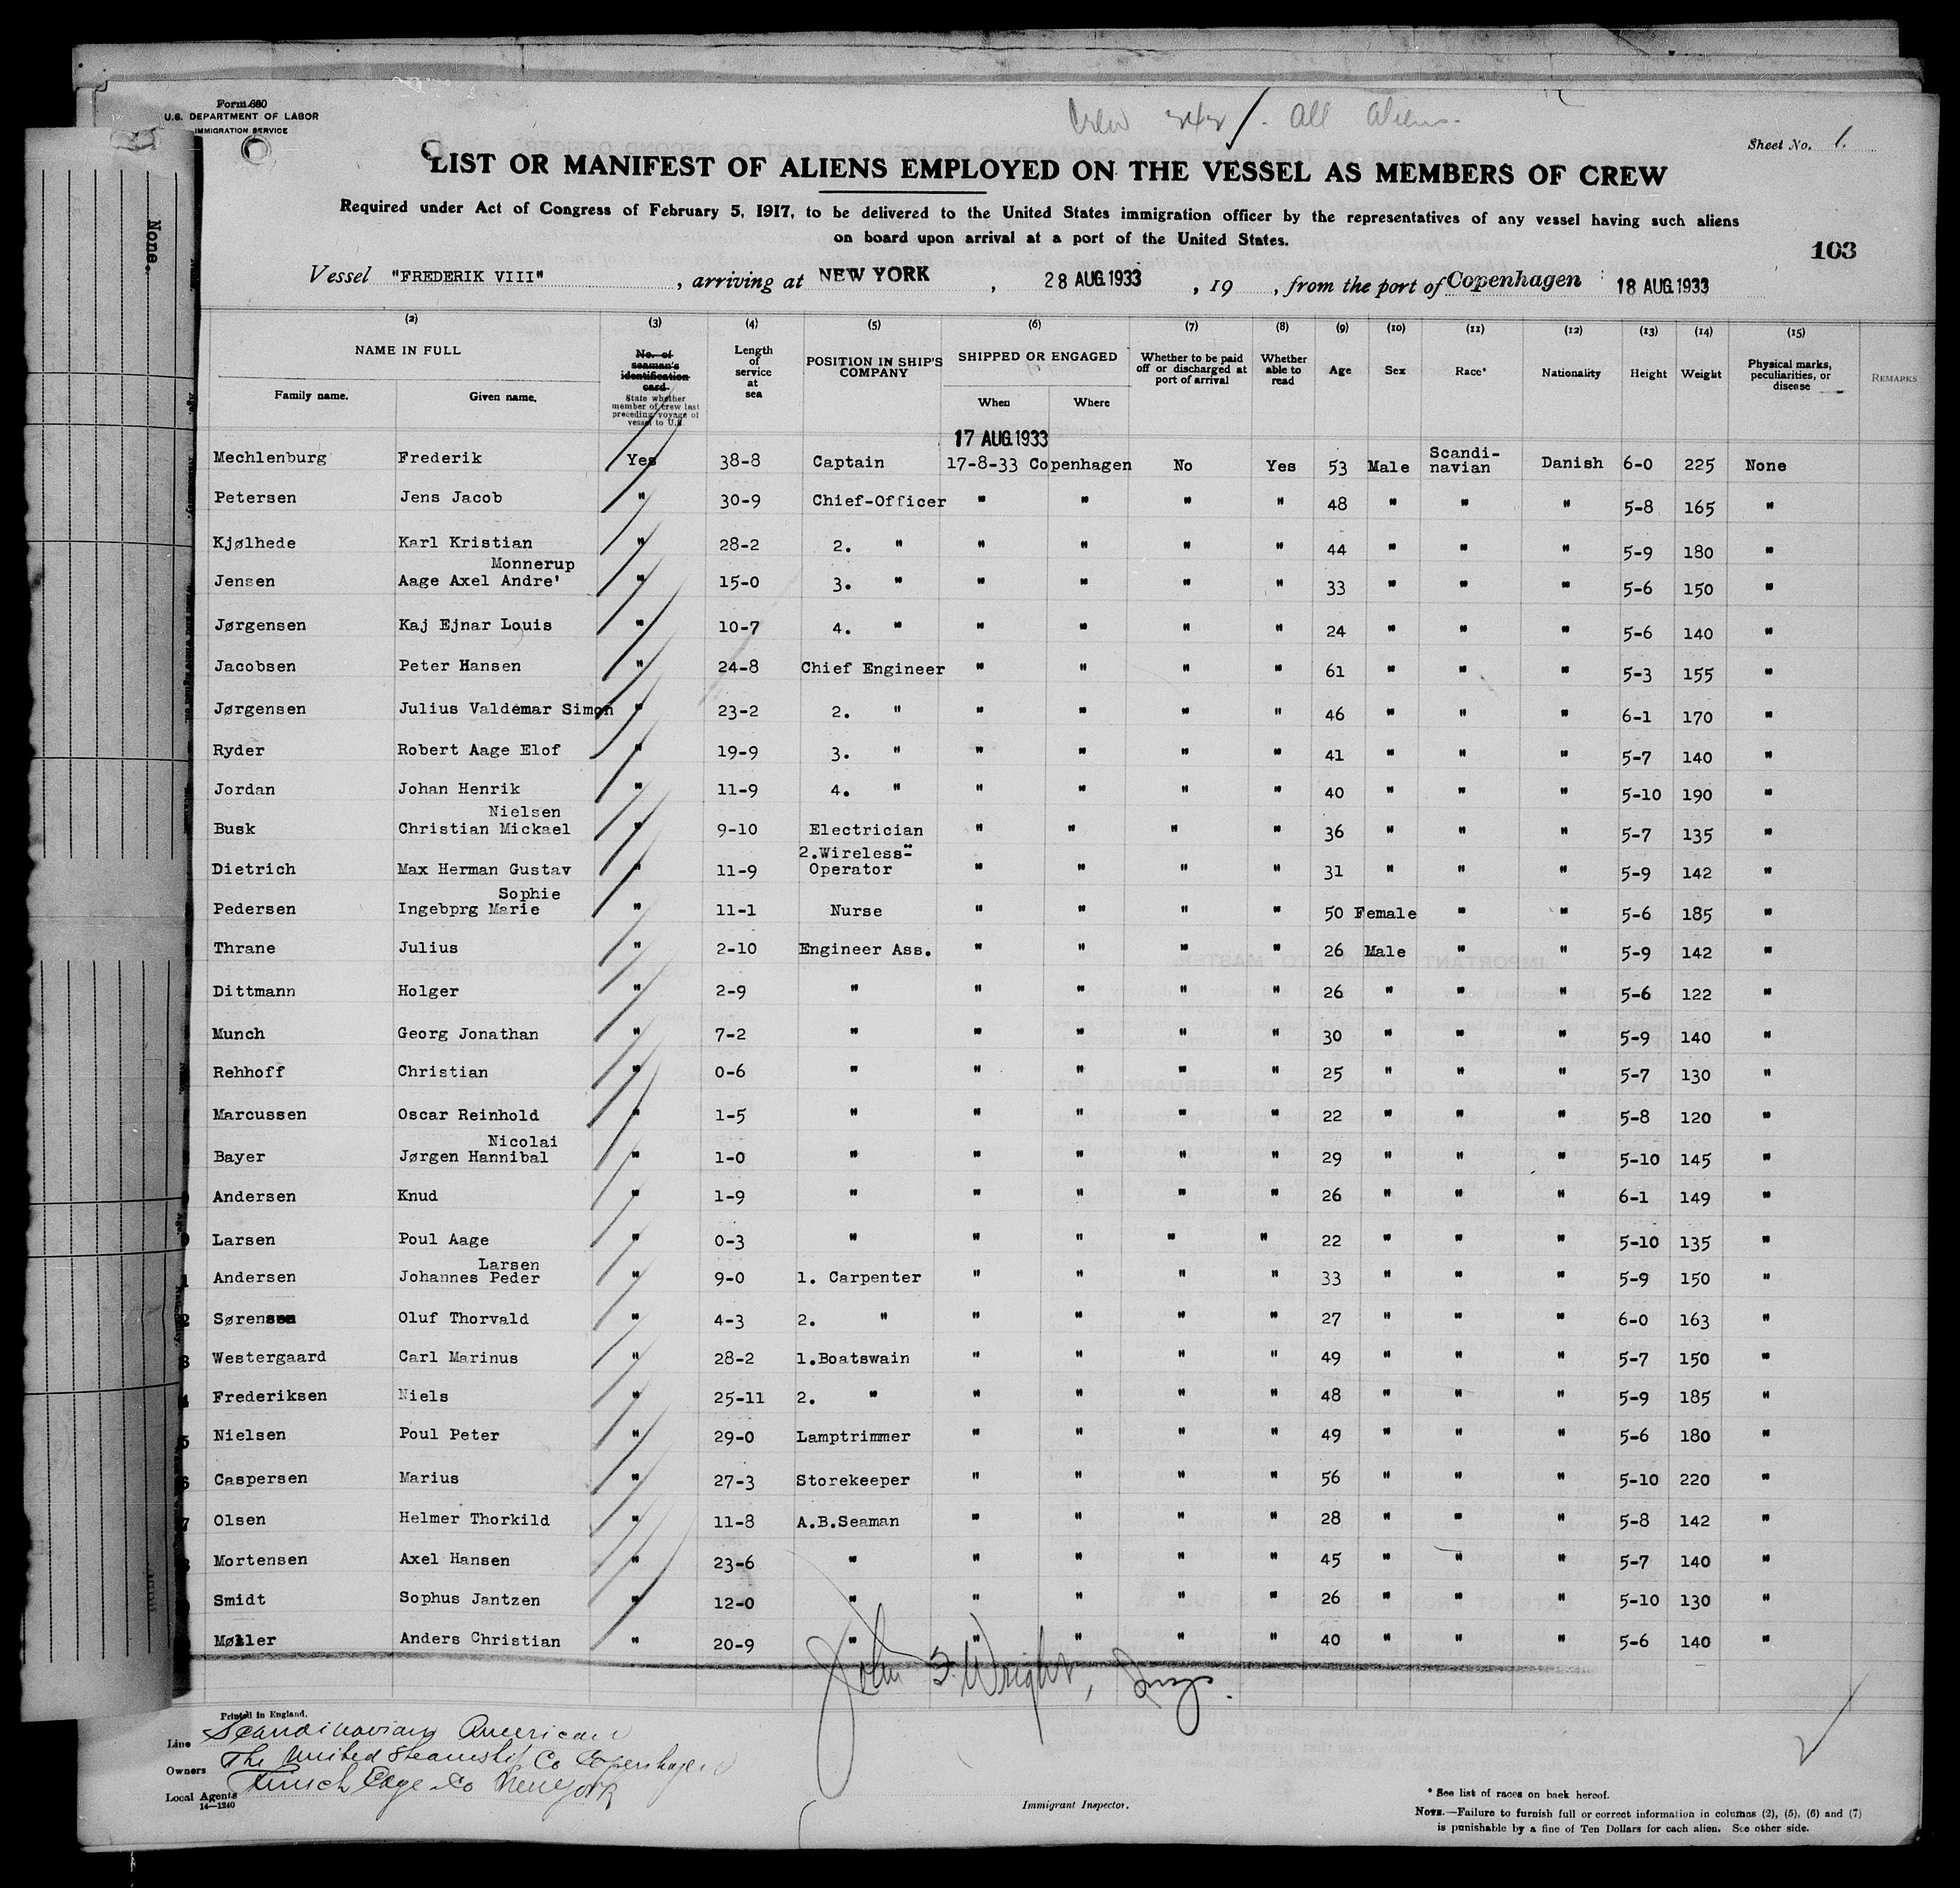 Form 680
U.S. DEPARTMENT OF LABOR
IMMIGRATION SERVICE
Crew / . All Aliens.
Sheet No. 1.
LIST OR MANIFEST OF ALIENS EMPLOYED ON THE VESSEL AS MEMBERS OF CREW
Required under Act of Congress of February 5, 1917, to be delivered to the United States immigration officer by the representatives of any vessel having such aliens
on board upon arrival at a port of the United States.
103
Vessel "FREDERIK VIII" , arriving at NEW YORK , 28 AUG.1933 , 19 , from the port of Copenhagen 18 AUG.1933
None.
(2) (3) (4) (5) (6) (7) (8) (9) (10) (11) (12) (13) (14) (15)
NAME IN FULL
Family name. Given name.
No. of seaman's identification card.
State whether member of crew last preceding voyage of vessel to U.S.
Length of service at sea
POSITION IN SHIP'S COMPANY
SHIPPED OR ENGAGED
When Where
Whether to be paid off or discharged at port of arrival
Whether able to read
Age Sex Race* Nationality Height Weight
Physical marks, peculiarities, or disease
REMARKS
17 AUG.1933
Mechlenburg Frederik Yes 38-8 Captain 17-8-33 Copenhagen No Yes 53 Male Scandi-navian Danish 6-0 225 None
Petersen Jens Jacob " 30-9 Chief-Officer " " " " 48 " " " 5-8 165 "
Kjølhede Karl Kristian " 28-2 2. " " " " " 44 " " " 5-9 180 "
Monnerup
Jensen Aage Axel Andre' " 15-0 3. " " " " " 33 " " " 5-6 150 "
Jørgensen Kaj Ejnar Louis " 10-7 4. " " " " " 24 " " " 5-6 140 "
Jacobsen Peter Hansen " 24-8 Chief Engineer " " " " 61 " " " 5-3 155 "
Jørgensen Julius Valdemar Simon " 23-2 2. " " " " " 46 " " " 6-1 170 "
Ryder Robert Aage Elof " 19-9 3. " " " " " 41 " " " 5-7 140 "
Jordan Johan Henrik " 11-9 4. " " " " " 40 " " " 5-10 190 "
Nielsen
Busk Christian Mickael " 9-10 Electrician " " " " 36 " " " 5-7 135 "
2.Wireless-
Dietrich Max Herman Gustav " 11-9 Operator " " " " 31 " " " 5-9 142 "
Sophie
Pedersen Ingebprg Marie " 11-1 Nurse " " " " 50 Female " " 5-6 185 "
Thrane Julius " 2-10 Engineer Ass. " " " " 26 Male " " 5-9 142 "
Dittmann Holger " 2-9 " " " " " 26 " " " 5-6 122 "
Munch Georg Jonathan " 7-2 " " " " " 30 " " " 5-9 140 "
Rehhoff Christian " 0-6 " " " " " 25 " " " 5-7 130 "
Marcussen Oscar Reinhold " 1-5 " " " " " 22 " " " 5-8 120 "
Nicolai
Bayer Jørgen Hannibal " 1-0 " " " " " 29 " " " 5-10 145 "
Andersen Knud " 1-9 " " " " " 26 " " " 6-1 149 "
Larsen Poul Aage " 0-3 " " " " " 22 " " " 5-10 135 "
Larsen
Andersen Johannes Peder " 9-0 1. Carpenter " " " " 33 " " " 5-9 150 "
Sørensen Oluf Thorvald " 4-3 2. " " " " " 27 " " " 6-0 163 "
Westergaard Carl Marinus " 28-2 1.Boatswain " " " " 49 " " " 5-7 150 "
Frederiksen Niels " 25-11 2. " " " " " 48 " " " 5-9 185 "
Nielsen Poul Peter " 29-0 Lamptrimmer " " " " 49 " " " 5-6 180 "
Caspersen Marius " 27-3 Storekeeper " " " " 56 " " " 5-10 220 "
Olsen Helmer Thorkild " 11-8 A.B.Seaman " " " " 28 " " " 5-8 142 "
Mortensen Axel Hansen " 23-6 " " " " " 45 " " " 5-7 140 "
Smidt Sophus Jantzen " 12-0 " " " " " 26 " " " 5-10 130 "
Møller Anders Christian " 20-9 " " " " " 40 " " " 5-6 140 "
John S. Wright, Insp.
Printed in England.
Line Scandinavian American
Owners The United Steamship Co Copenhagen
Local Agents Funch Edge Co New York
14—1240
Immigrant Inspector.
* See list of races on back hereof.
NOTE.—Failure to furnish full or correct information in columns (2), (5), (6) and (7)
is punishable by a fine of Ten Dollars for each alien. See other side.